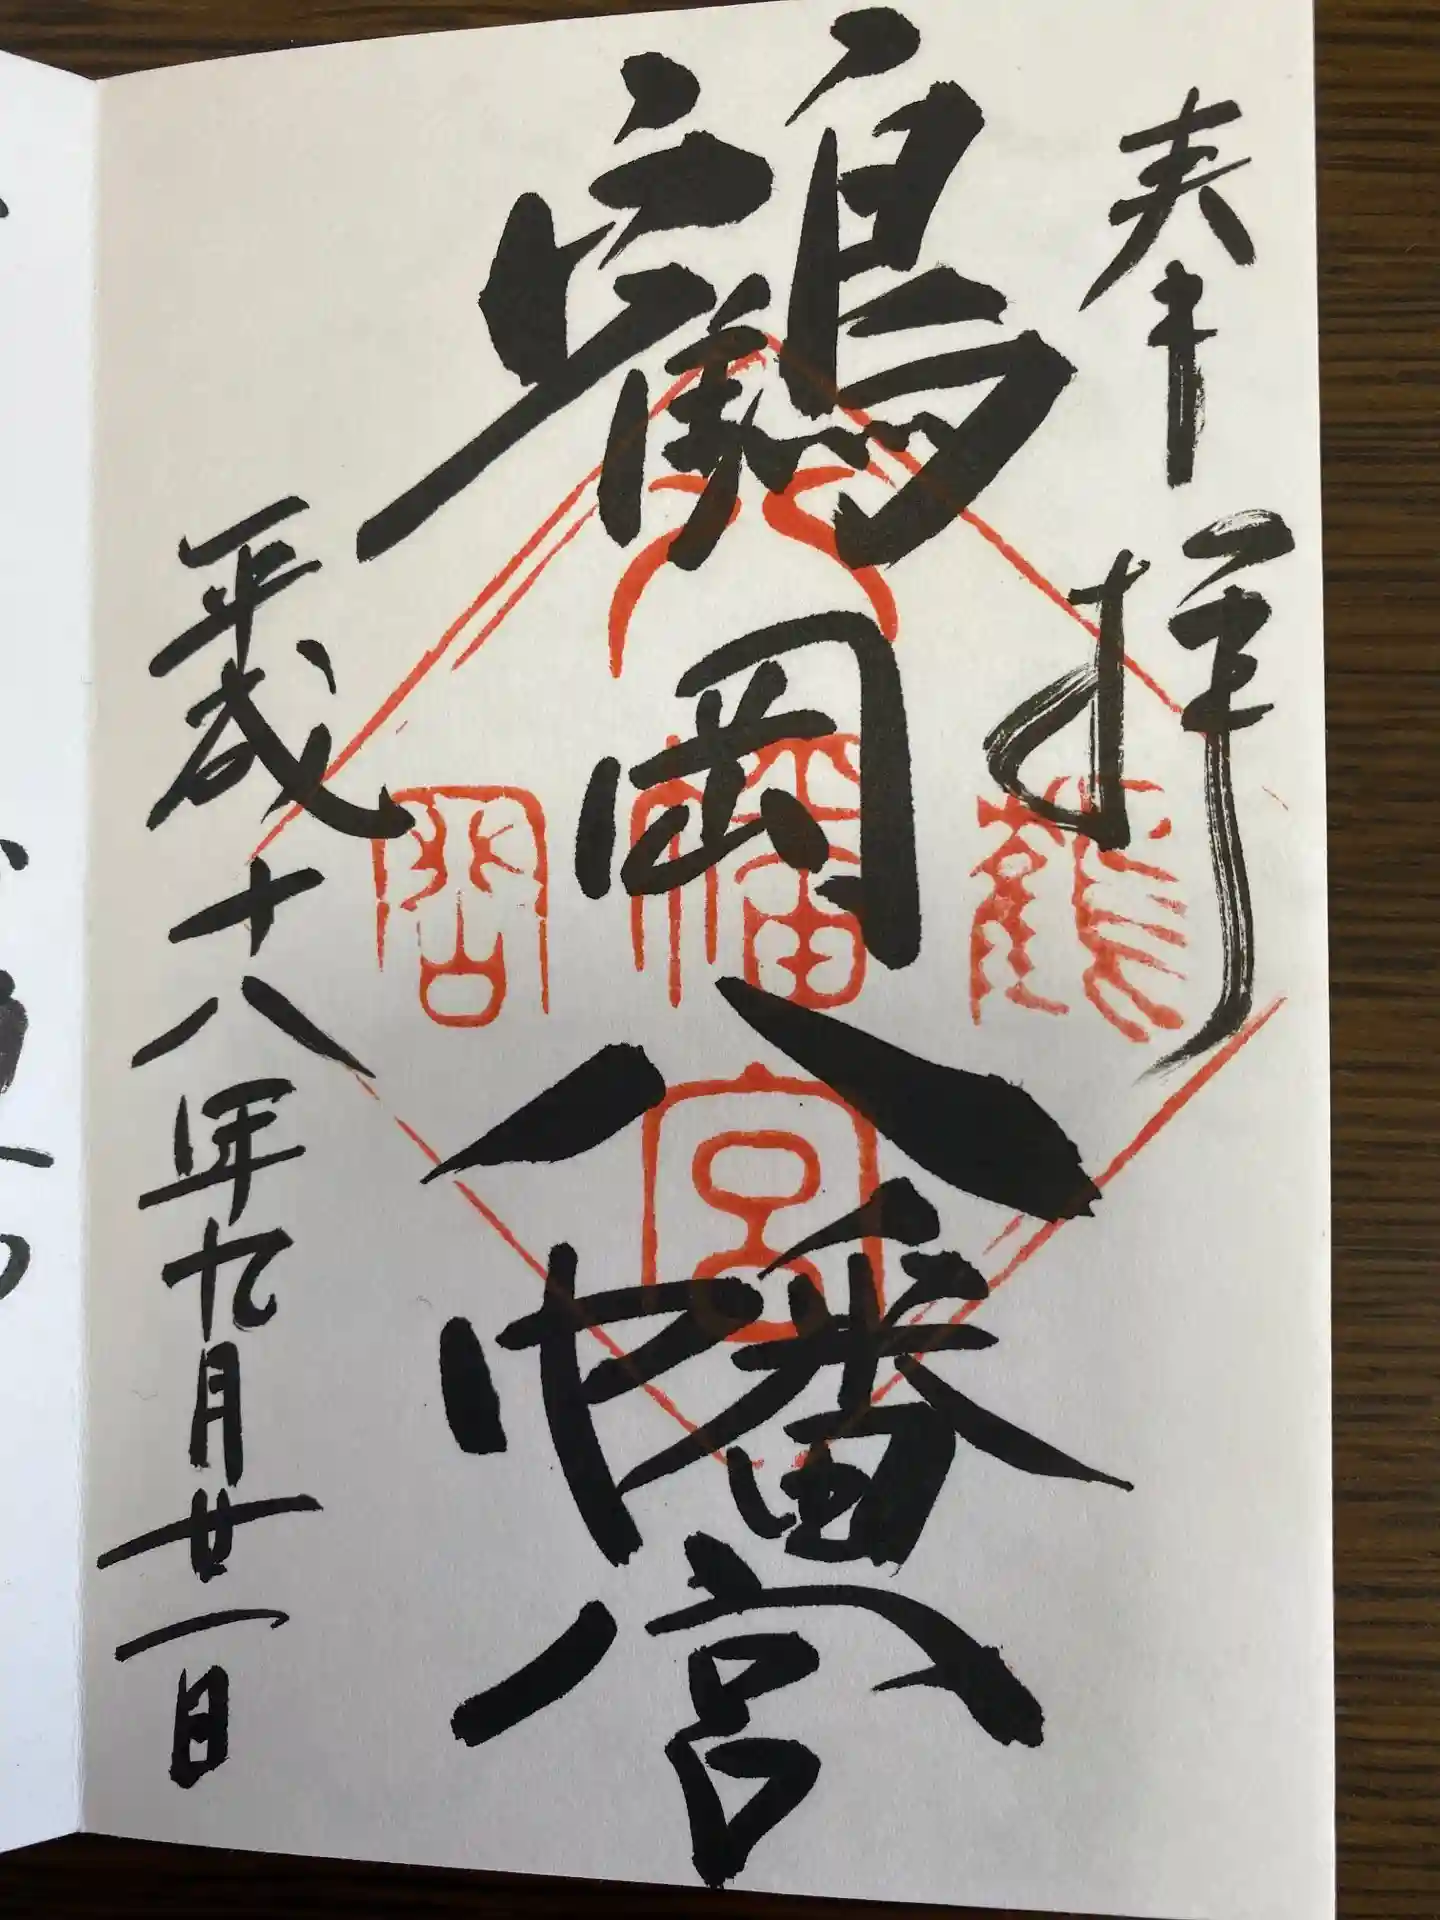 奉拝
鶴岡八幡宮
平成十八年九月廿一日
八
鶴
幡
岡
宮